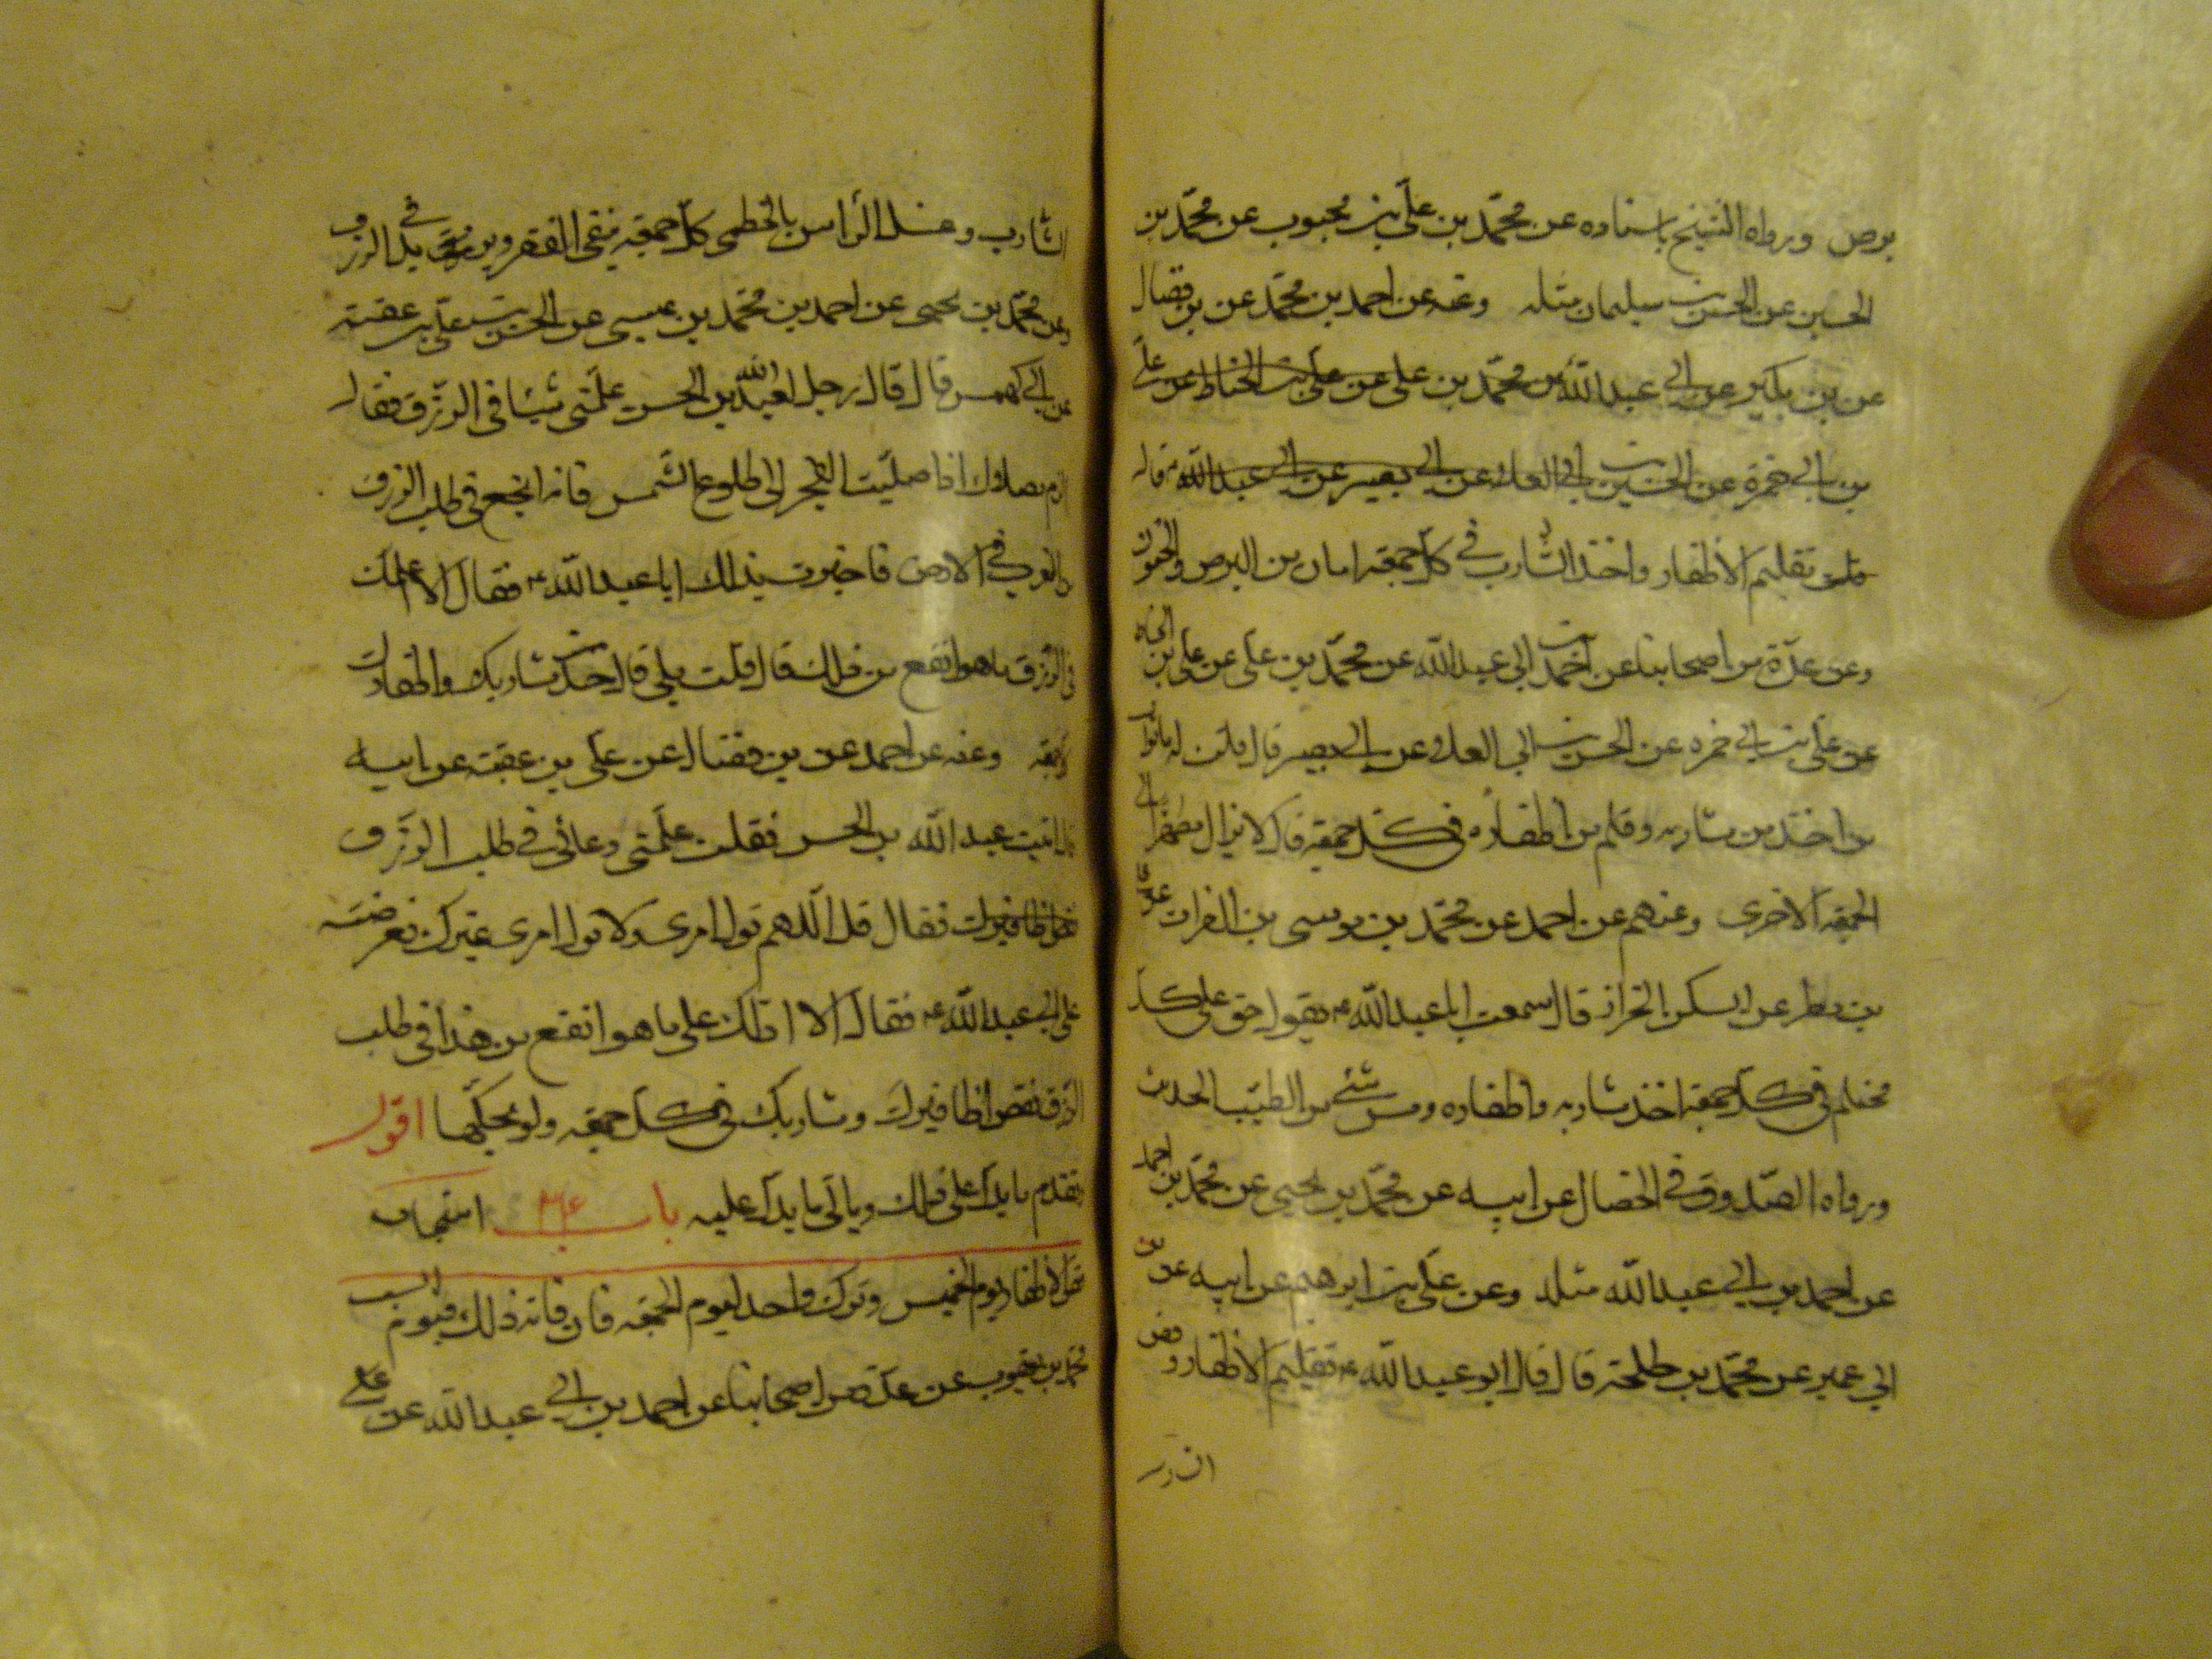 برص ورواه الشيخ باسناده عن محمّد بن علّي بن محبوب عن محمّد بن
الحسين عن الحسن بن سليمان مثله وعنه عن احمد بن محمّد عن بن فضال
عن بن بكير عن ابي عبد اللّه ع محمّد بن علي عن علّي بن الحناط عن علّي
بن ابي حمزة عن الحسين بن ابي العلا عن ابي بصير عن ابي عبد اللّه ع قال
تقليم الاظفار واخذ الشارب في كلّ جمعة امان من البرص والجنون
وعن عدّة من اصحابنا عن احمد بن ابي عبد اللّه عن محمّد بن علي عن علي بن
عن علّي بن ابي حمزه عن الحسن بن ابي العلا عن ابي بصير قال قلت له ما ثواب
من اخذ من شاربه وقلم من اظفاره في كل جمعة قال لا يزال مطهّرا الي
الجمعة الاخرى وعنهم عن احمد عن محمّد بن موسى بن الفرات عن علّي
بن مطر عن السكن الخراز قال سمعت ابا عبد اللّه ع يقول حق علي كلّ
محتلم في كلّ جمعة اخذ شاربه واظفاره ومس شئ من الطيّب الحديث
ورواه الصّدوق في الخصال عن ابيه عن محمّد بن يحيى عن محمّد بن احمد
عن احمد بن ابي عبد اللّه مثله وعن علّي بن ابرهيم عن ابيه عن بن
ابي عمير عن محمّد بن طلحة قال قال ابو عبد اللّه ع تقليم الاظفار وقص
الشارب وغسل الرّاس بالخطمى كلّ جمعة ينفى الفقر ويزيد في الرزق
وعن محمّد بن يحيى عن احمد بن محمّد بن عيسى عن الحسن بن علّي بن عقبة
عن ابي كهمس قال قال رجل لعبد اللّه بن الحسن علّمنى شيئا في الرّزق فقال
الزم مصلاّك اذا صلّيت الفجر الى طلوع الشّمس فانه انجع في طلب الرزق
من الضرب في الارض فاخبرت بذلك ابا عبد اللّه ع فقال الا اعلمك
في الرّزق ما هو انفع من ذلك قال قلت بلي قال خذ من شاربك واظفارك
كل جمعة وعنه عن احمد عن بن فضال عن علي بن عقبة عن ابيه
قال اتيت عبد اللّه بن الحسن فقلت علّمنى دعائى في طلب الرّزق
فقال قل اللّهم تولّ امرى ولا تولّ امرى غيرك فعرضته
على ابي عبد اللّه ع فقال الا ادلّك على ما هو انفع من هذا في طلب
الرّزق تقص اظافيرك وشاربك في كل جمعة ولو بحكّها اقول
وتقدم ما يدلّ على ذلك وياتى ما يدلّ عليه باب استحباب
قص الاظفار يوم الخميس وترك واحد ليوم الجمعة فان فاته ذلك فيوم السبت
محمّد بن يعقوب عن عدّة من اصحابنا عن احمد بن ابي عبد اللّه عن علي